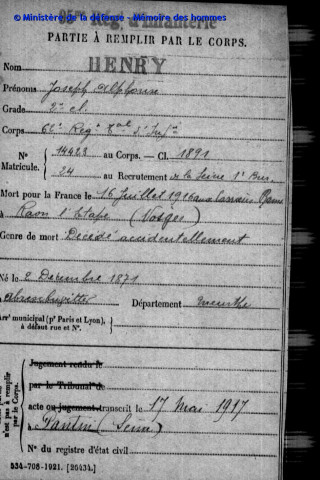 © Ministère de la défense - Mémoire des hommes
Rég. d'Infanterie
PARTIE À REMPLIR PAR LE CORPS.
Nom HENRY
Prénoms Joseph Alphonse
Grade 2e cl.
Corps 62e Régt d'Infie
N° Matricule. 14423 au Corps. — Cl. 1891
24 au Recrutement de la Seine 1er Bur
Mort pour la France le 16 Juillet 1916 aux
à Raon l'Etape (Vosges)
Genre de mort Décédé accidentellement
Né le 2 Décembre 1871
à Département Meurthe
Arrt municipal (pr Paris et Lyon), à défaut rue et N°.
Jugement rendu le
par le Tribunal de
acte ou jugement transcrit le 17 Mai 1917
à Pantin (Seine)
N° du registre d'état civil
534-708-1921. [26434.]
n'est pas à remplir par le Corps.